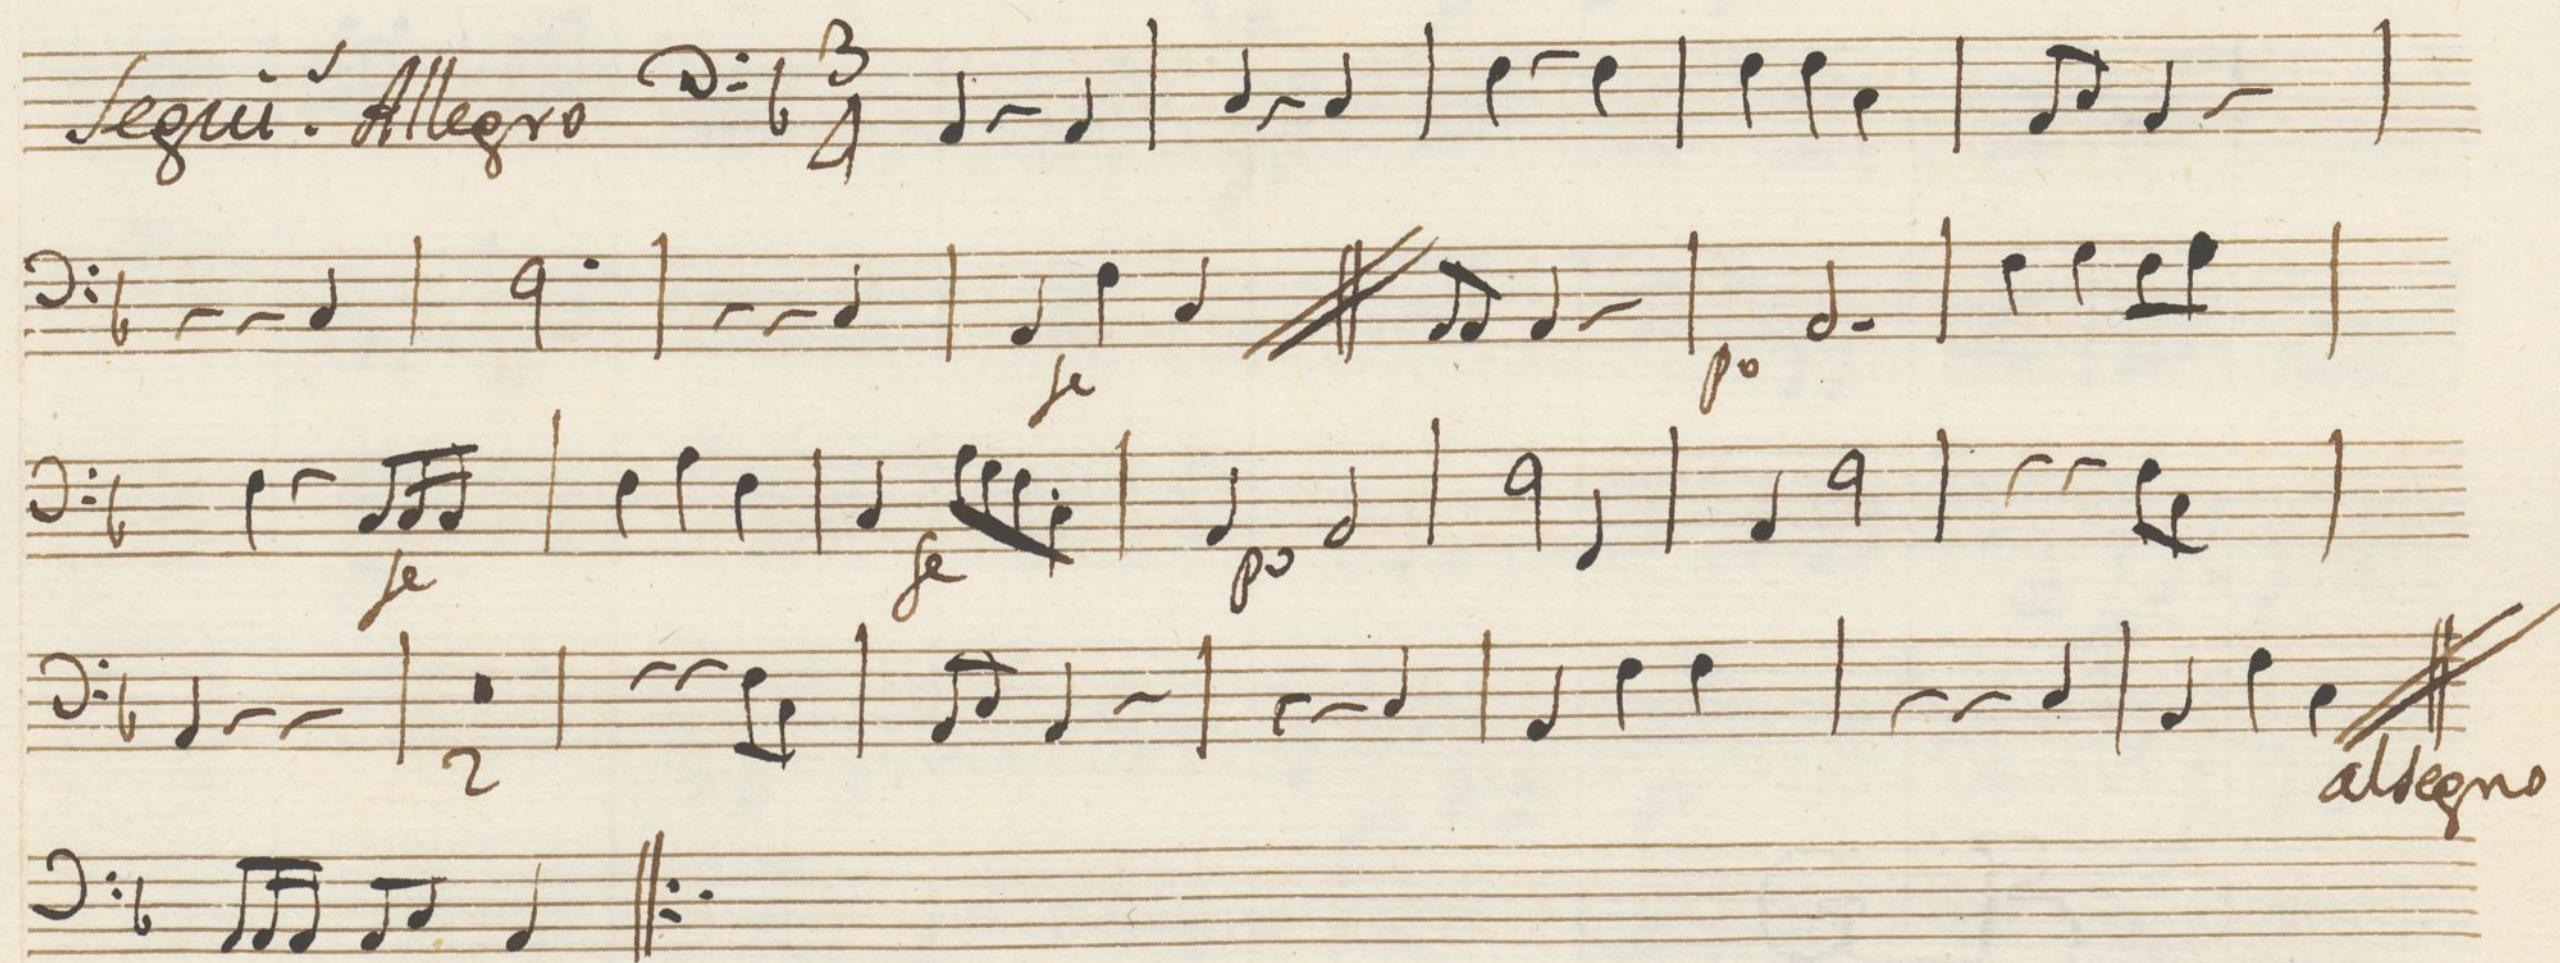 Segui.s Allegro 3 4
fe po
fe fe po
2
alsegno